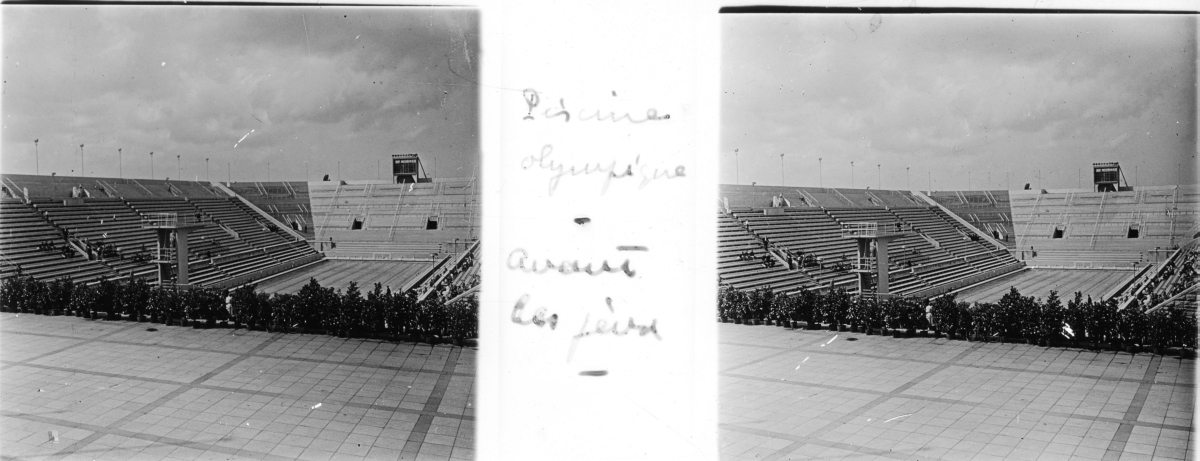 Piscine
olympique
-
Avant
les jeux
-